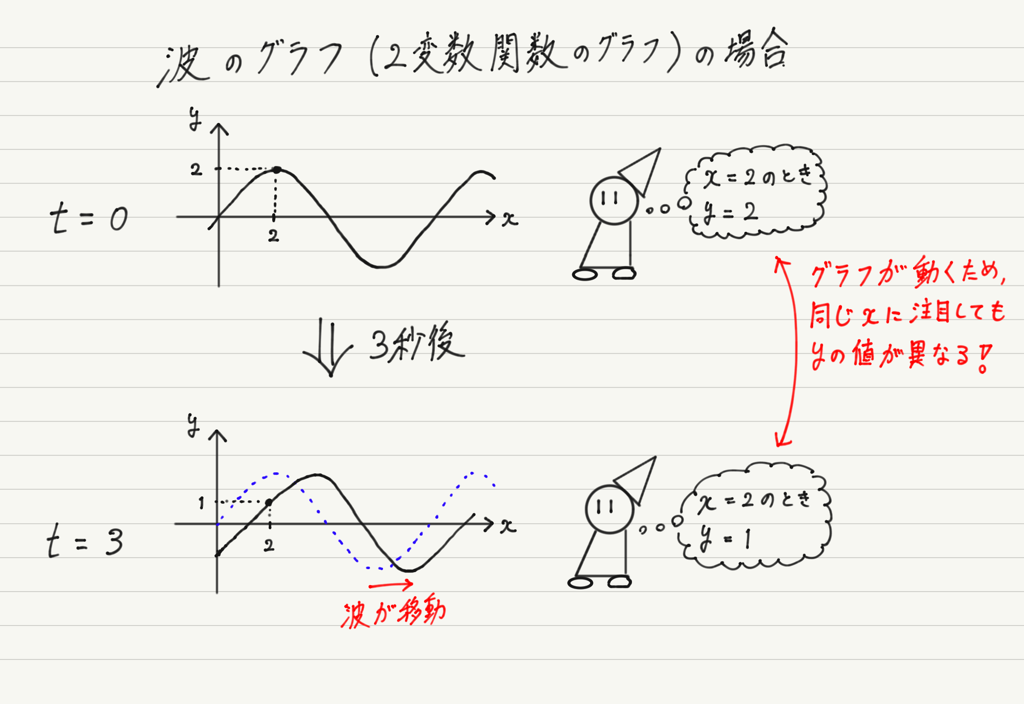 波のグラフ(2変数関数のグラフ)の場合
y
2
2
x
t=0
x=2のとき
y=2
グラフが動くため,
同じxに注目しても
yの値が異なる!
3秒後
y
1
2
x
t=3
x=2のとき
y=1
波が移動